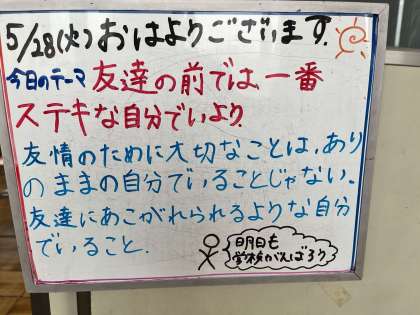 5/28(火) おはようございます.
今日のテーマ 友達の前では一番
ステキな自分でいよう.
友情のために大切なことは、あり
のままの自分でいることじゃない.
友達にあこがれられるような自分
でいること.
明日も
学校がんばろう